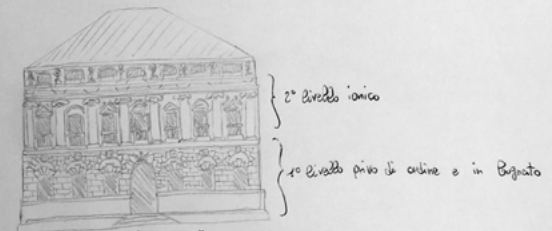 2° livello ionico
1° livello privo di ordine e in bugnato